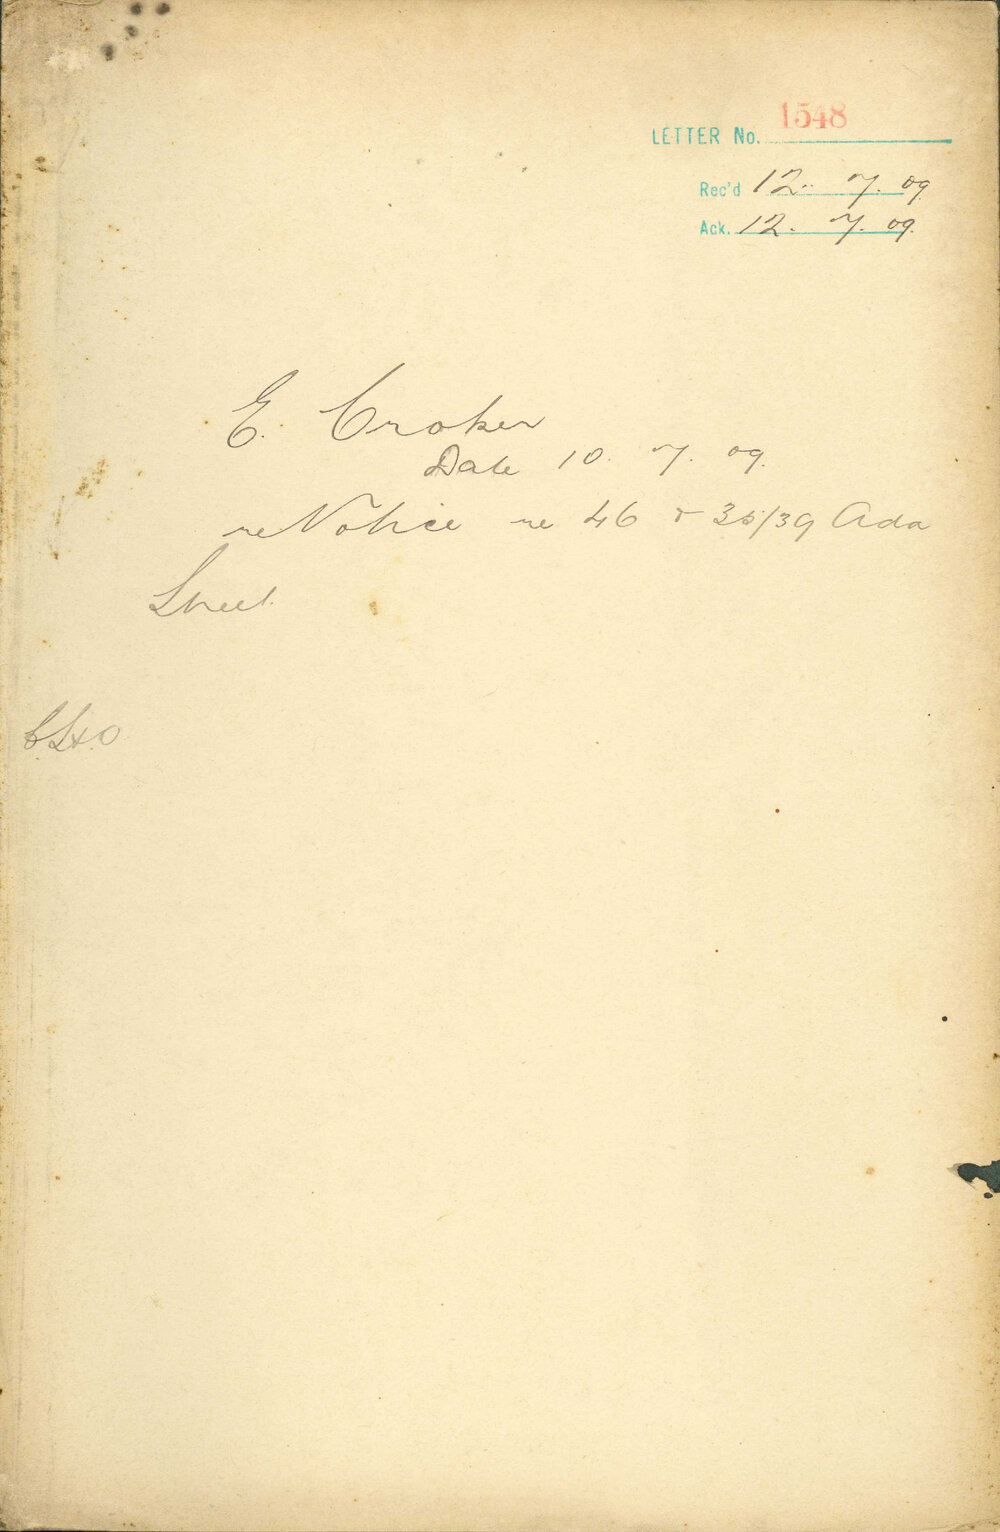 LETTER No. 1548
Rec'd 12. 7. 09
Ack. 12. 7. 09.
E. Croker
Date 10. 7. 09.
re Notice re 46 & 35/39 Ada
Street